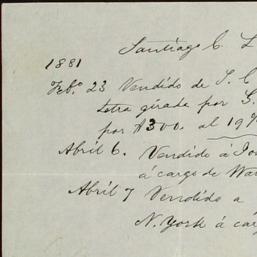 Santiago C. L
1881
Feb.º 23 Vendido de S. C
letra girada por G.
por $300. al 19%
Abril 6. Vendido á Jo
á cargo de Wa
Abril 7 Vendido a
N. York á car